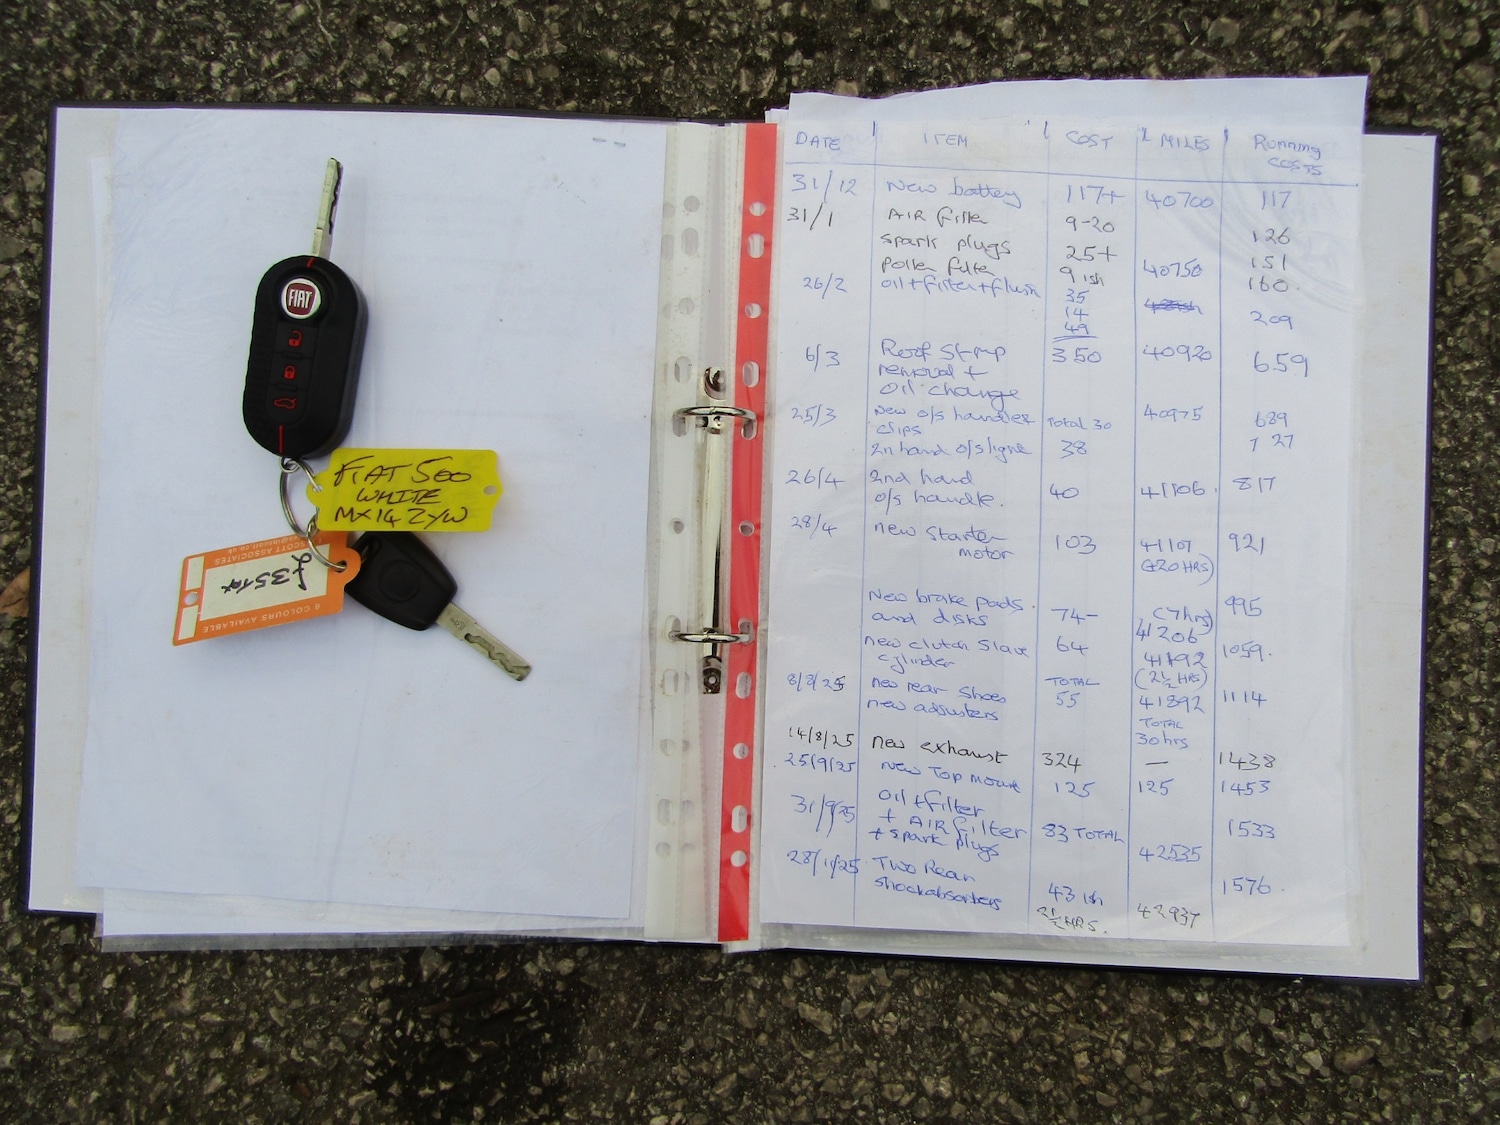 FIAT
FIAT 500
WHITE
MX14 ZYW
SCOTT ASSOCIATES
£35 Tax
8 COLOURS AVAILABLE
DATE ITEM COST MILES Running COSTS
31/12 New battery 117+ 40700 117
31/1 AIR filter 9-20 126
spark plugs 25+ 151
Pollen filter 9 ish 40750 160
26/2 oil+filter+flush 35
14
49 209
6/3 Roof Strip 350 40920 659
removal +
oil change
25/3 New o/s handle+ Total 30 40975 689
clips
2n hand o/s 38 727
26/4 2nd hand 40 41106 817
o/s handle.
28/4 new starter 103 41107 921
motor (20 HRS)
New brake pads 74- (7hrs) 995
and disks 41206
new clutch slave 64 41192 1059.
cylinder (2½ HRS)
8/8/25 new rear shoes TOTAL 41892 1114
new adjusters 55 TOTAL
30hrs
14/8/25 new exhaust 324 — 1438
25/9/25 New Top mount 125 125 1453
31/9/25 oil+filter
+ AIR filter 83 TOTAL 1533
+ spark plugs 42535
28/11/25 Two Rear
shockabsorbers 43 ish 1576.
2½ HRS. 42937